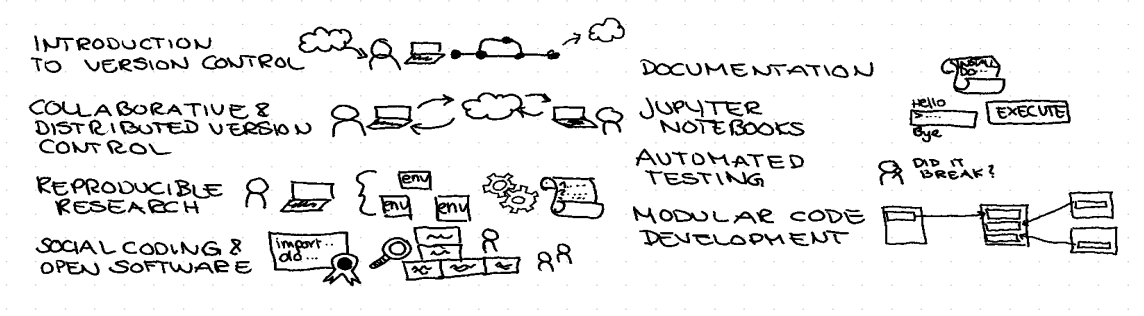 INTRODUCTION
TO VERSION CONTROL
COLLABORATIVE &
DISTRIBUTED VERSION
CONTROL
REPRODUCIBLE
RESEARCH
env
env
env
SOCIAL CODING &
OPEN SOFTWARE
import..
old...
DOCUMENTATION
INSTALL
DO...
JUPYTER
NOTEBOOKS
Hello
>....
Bye
EXECUTE
AUTOMATED
TESTING
DID IT
BREAK?
MODULAR CODE
DEVELOPMENT